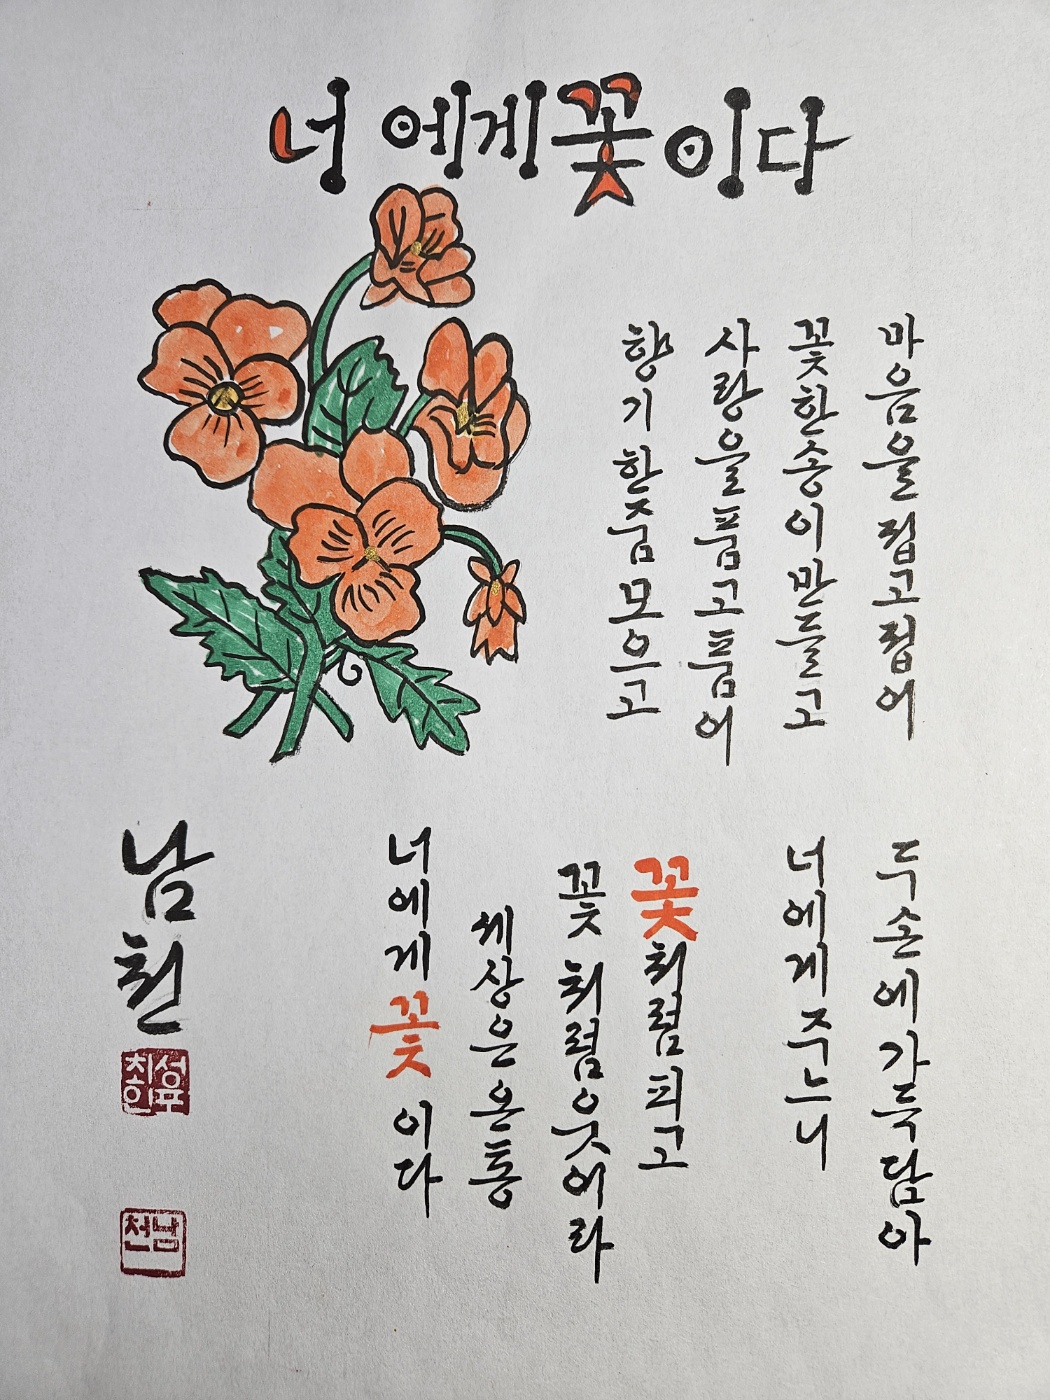 너에게 꽃이다
마음을 접고 접어
꽃한송이 만들고
사랑을 품고 품어
향기 한줌 모으고
두손에 가득 담아
너에게 주느니
꽃처럼 피고
꽃처럼 웃어라
세상은 온통
너에게 꽃이다
남천
남천